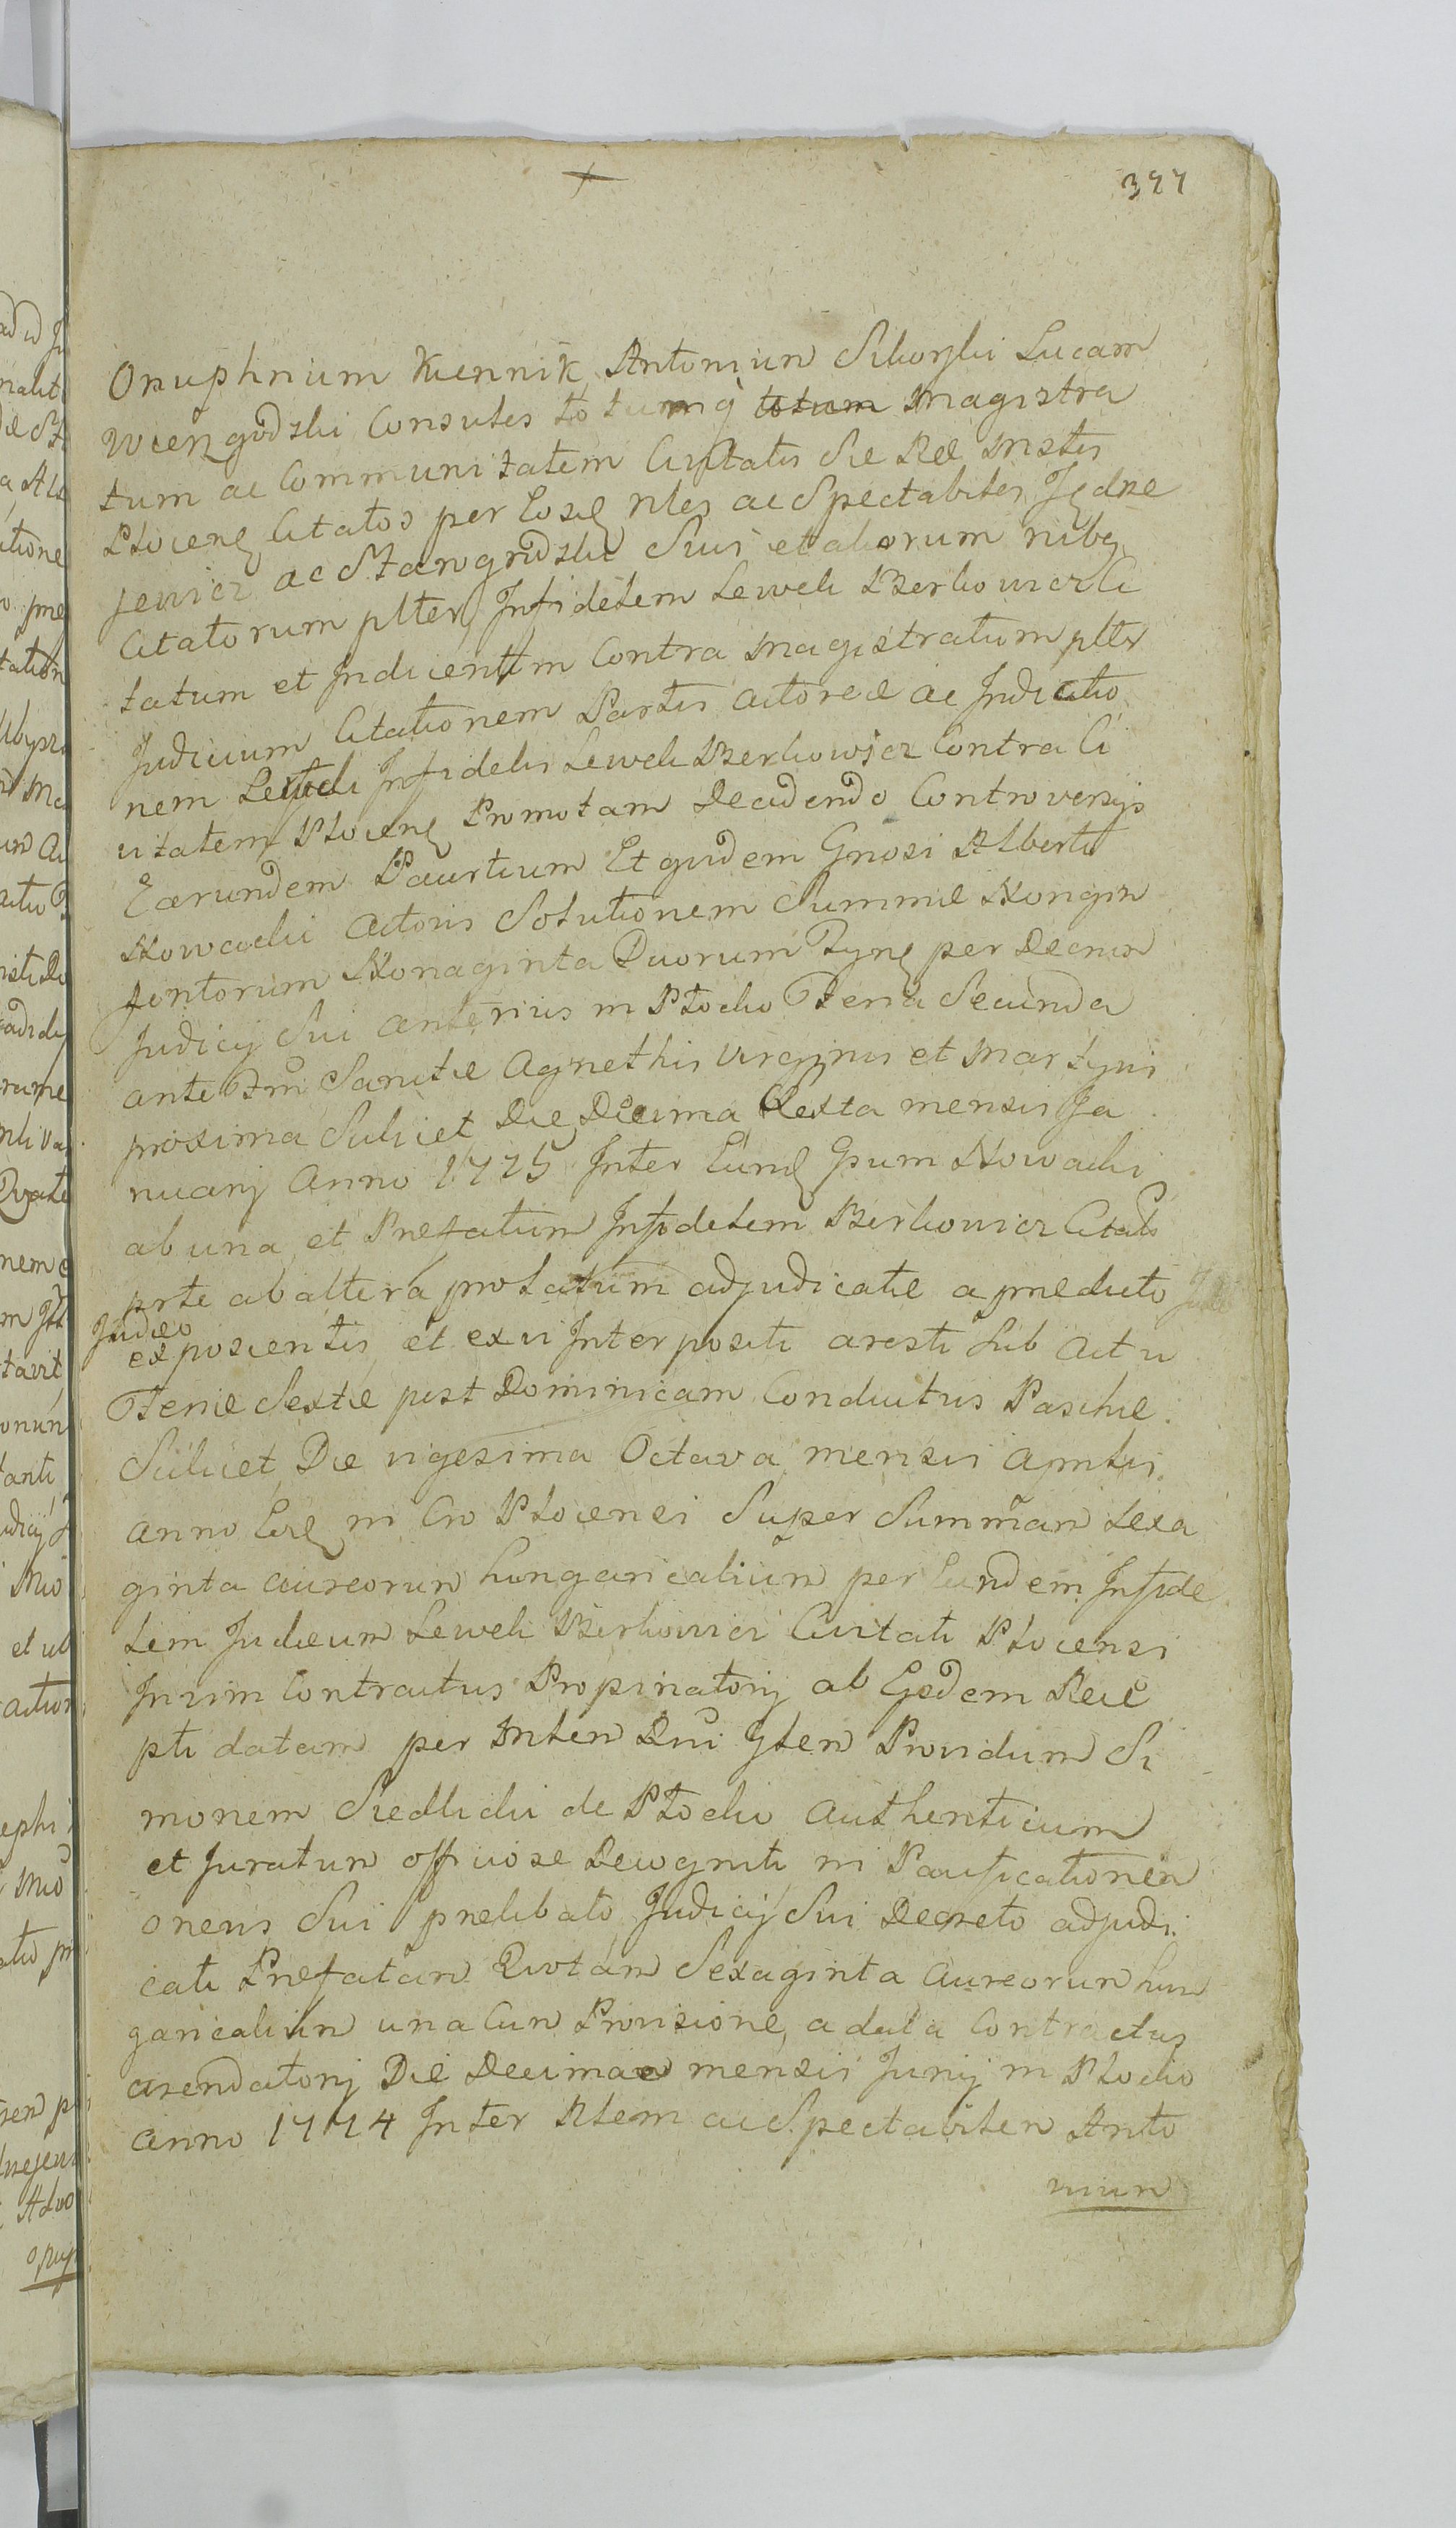 377
Onuphrium Kiennik Antonium Sikorski Lucam
Wierzgodzki Consules totumq totum Magistra
tum ac Communitatem Civitatis Sae Rae Mstis
Plocens Citatos per Eosd Nles ac Spectabiles Jędrze
jewicz ac Starogrodzki Suis et aliorum nibq
Citatorum plter Infidelem Lewek Berkowicz Ci
tatum et Inducentem Contra Magistratum plter
Judicium Citationem Partis Actoreae ac Inductio
nem Lewek Infidelis Lewek Berkowicz Contra Ci
vitatem Plocens Promotam Decidendo Controversijs
Earundem Paartium Et quidem Gnosi Alberti
Nowacki Actoris Solutionem Summae Nongen
tentorum Nonaginta Duorum Tyns per Decretum
Judicij Sui anterius in Płocko Feria Secunda
ante Ftm Sanctae Agnethis Virginis et Martyris
proxima Scilicet Die Decima Sexta mensis Ja
nuarij Anno 1775 Inter Eund Gsum Nowacki
ab una et Praefatum Infidelem Berkowicz Citatum
prte ab altera prolatum adjudicatae a praedicto
Judaeo
exposcentis et ex vi Interpositi aresti Sub Actu
Feriae Sextae post Dominicam Conductus Paschae
Scilicet Die vigesima Octava mensis Aprilis
anno Eod in Cro Plocensi Super Summam Sexa
ginta aureorum hungaricalium per Eundem Infide
lem Judaeum Lewek Berkowicz Civitati Plocensi
In vim Contractus Propinatorij ab Eadem Rece
pti datam per Mlem Dni Glem Providum Si
monem Siedlicki de Płocko Authenticum
et Juratum officiose Recogniti in Pacificationem
oneris Sui praelibato Judicij Sui Decreto adjudi
cati Praefatam Quotam Sexaginta Aureorum hun
garicalium una Cum Provisione a data Contractus
arendatorij Die Decima mensis Junij in Płocko
anno 1774 Inter Nlem ac Spectabilem Anto
nium